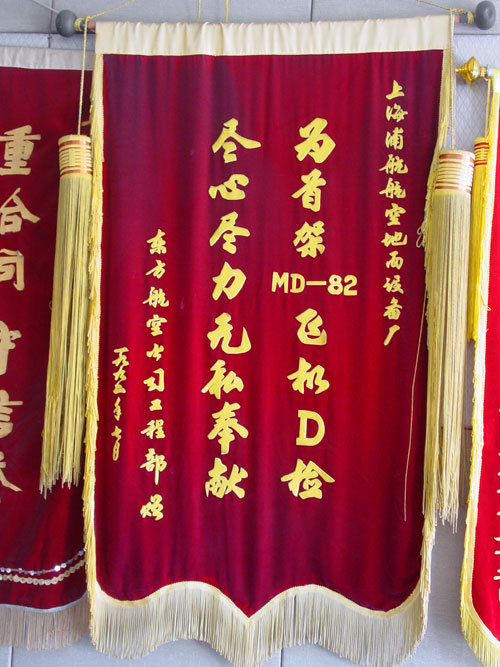 上海浦航航空地面设备厂
为首架MD-82飞机D检
尽心尽力无私奉献
东方航空公司工程部 赠
重合同 守信